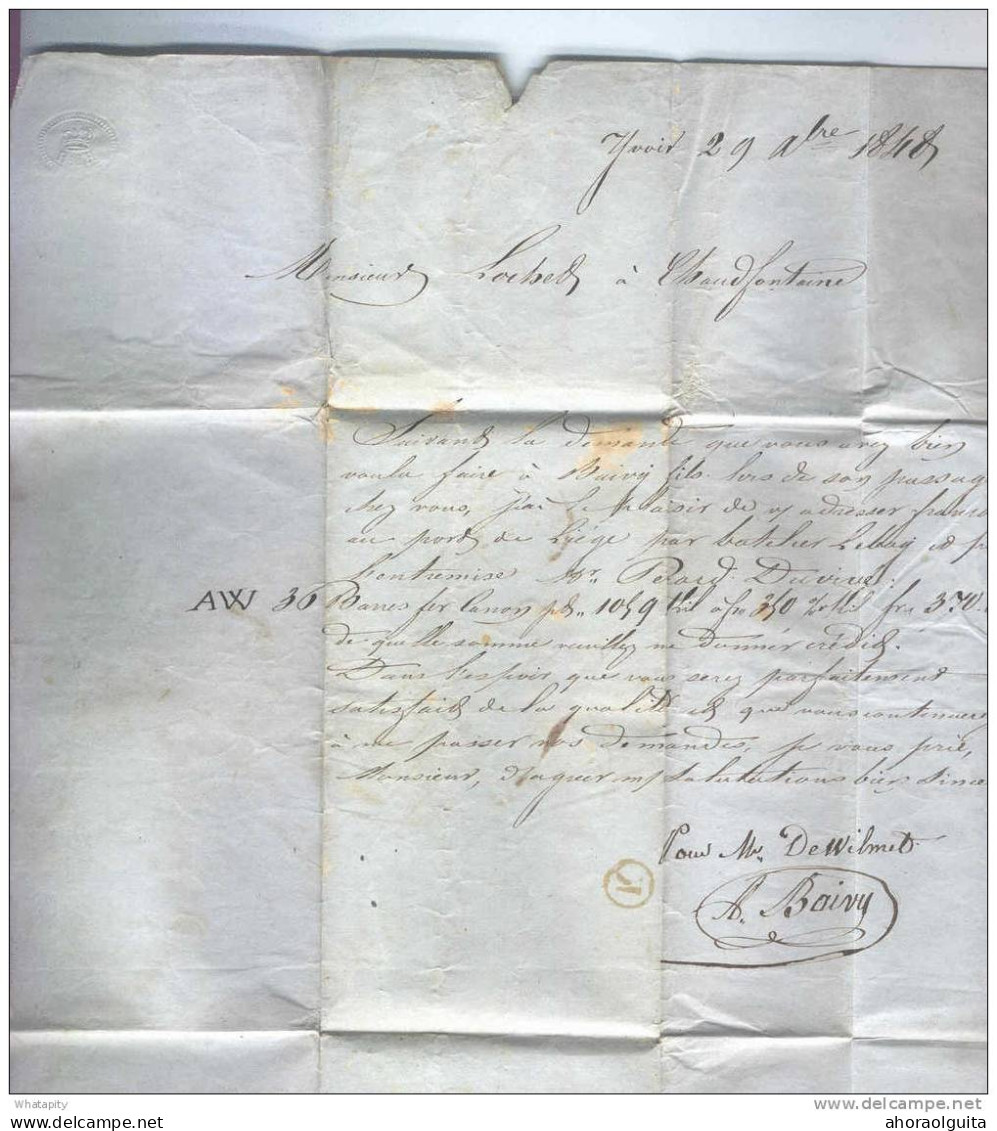 Yvoir 29 Abre 1848
Monsieur Lochet à Chaudfontaine
Suivant la demande que vous avez bien
voulu faire à Baivy fils lors de son passag
chez vous, j'ai le plaisir de vs adresser franco
au port de Liége par batelier et p
l'entremise Mr. Duvivier
AW 36 Barres fer canon 1059 350 frs 370
de quelle somme veuillez me donner crédit.
Dans l'espoir que vous serez parfaitement
satisfait de la qualité et que vous continuerez
à me passer vos demandes, je vous prie,
Monsieur, d'agréer mes salutations bien since
Pour Mr. De Wilmet
A. Baivy
Whatapity
delcampe.net
ahoraolguita